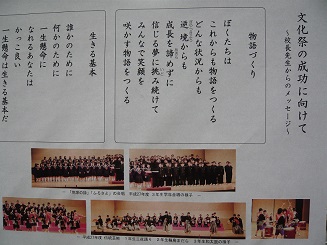 文化祭の成功に向けて
～校長先生からのメッセージ～
物語づくり
ぼくたちは
これからも物語をつくる
どんな状況からも
逆境からも
成長を諦めずに
信じる夢に挑み続けて
みんなで笑顔を
咲かす物語をつくる
生きる基本
誰かのために
何かのために
一生懸命に
なれるあなたは
かっこ良い
一生懸命は生きる基本だ